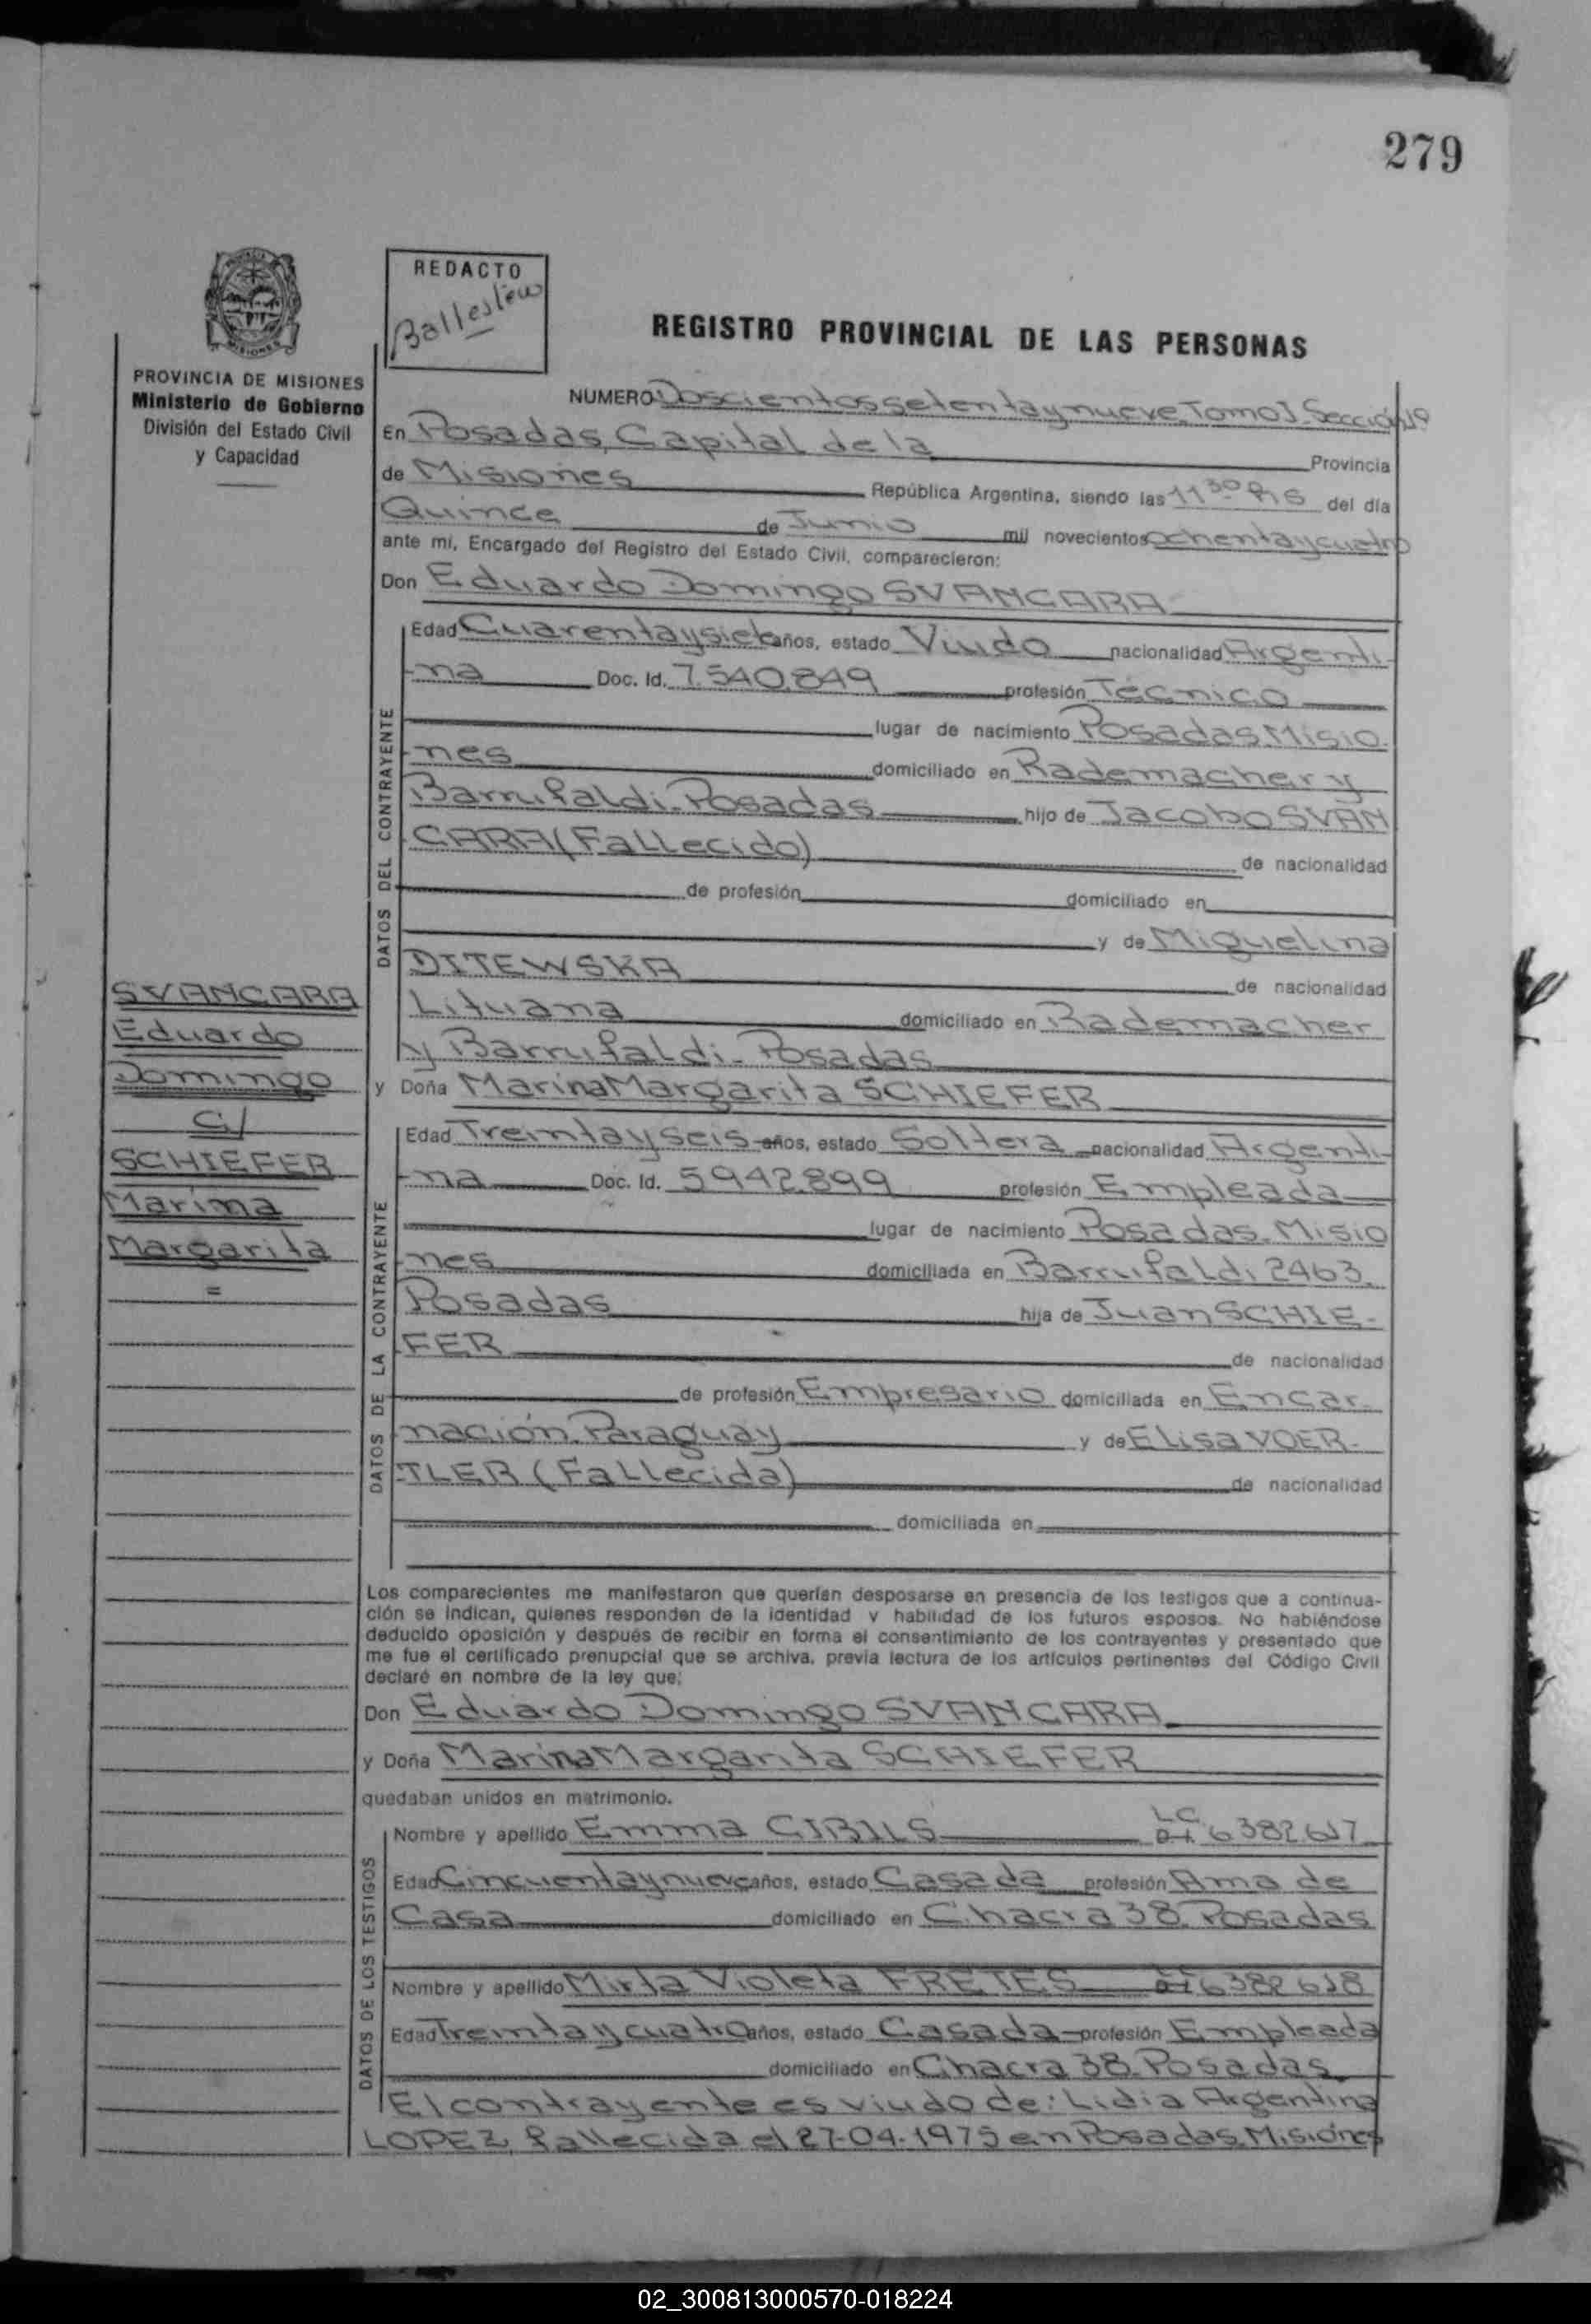 279
REDACTO
REGISTRO PROVINCIAL DE LAS PERSONAS
PROVINCIA DE MISIONES
Ministerio de Gobierno
División del Estado Civil
y Capacidad
NUMERO Doscientos setenta y nueve. Tomo I. Sección 1º
En Posadas, Capital de la Provincia
de Misiones República Argentina, siendo las 11 30 Hs del día
Quince de Junio mil novecientos ochenta y cuatro
ante mí, Encargado del Registro del Estado Civil, comparecieron:
Don Eduardo Domingo SVANCARA
DATOS DEL CONTRAYENTE
Edad Cuarenta y siete años, estado Viudo nacionalidad Argenti-
na Doc. Id. 7.540.849 profesión Técnico
lugar de nacimiento Posadas Misio-
nes domiciliado en Rademacher y
Barrufaldi-Posadas hijo de Jacobo SVAN
CARA (Fallecido) de nacionalidad
de profesión domiciliado en
y de Miguelina
DITEWSKA de nacionalidad
Lituana domiciliado en Rademacher
y Barrufaldi-Posadas
SVANCARA
Eduardo
Domingo
C/
SCHIEFER
Marina
Margarita
=
y Doña Marina Margarita SCHIEFER
DATOS DE LA CONTRAYENTE
Edad Treinta y seis años, estado Soltera nacionalidad Argenti-
na Doc. Id. 5942.899 profesión Empleada
lugar de nacimiento Posadas. Misio
nes domiciliada en Barrufaldi 2463.
Posadas hija de Juan SCHIE-
FER de nacionalidad
de profesión Empresario domiciliada en Encar-
nación. Paraguay y de Elisa VOER-
TLER (Fallecida) de nacionalidad
domiciliada en
Los comparecientes me manifestaron que querían desposarse en presencia de los testigos que a continua-
ción se indican, quienes responden de la identidad y habilidad de los futuros esposos. No habiéndose
deducido oposición y después de recibir en forma el consentimiento de los contrayentes y presentado que
me fue el certificado prenupcial que se archiva, previa lectura de los artículos pertinentes del Código Civil
declaré en nombre de la ley que:
Don Eduardo Domingo SVANCARA
y Doña Marina Margarita SCHIEFER
quedaban unidos en matrimonio.
DATOS DE LOS TESTIGOS
Nombre y apellido Emma CIBILS LC 6382617
Edad Cincuenta y nueve años, estado Casada profesión Ama de
Casa domiciliado en Chacra 38. Posadas
Nombre y apellido Mirta Violeta FRETES 6382618
Edad Treinta y cuatro años, estado Casada profesión Empleada
domiciliado en Chacra 38. Posadas.
El contrayente es viudo de: Lidia Argentina
LOPEZ, fallecida el 27-04-1975 en Posadas, Misiones
02_300813000570-018224